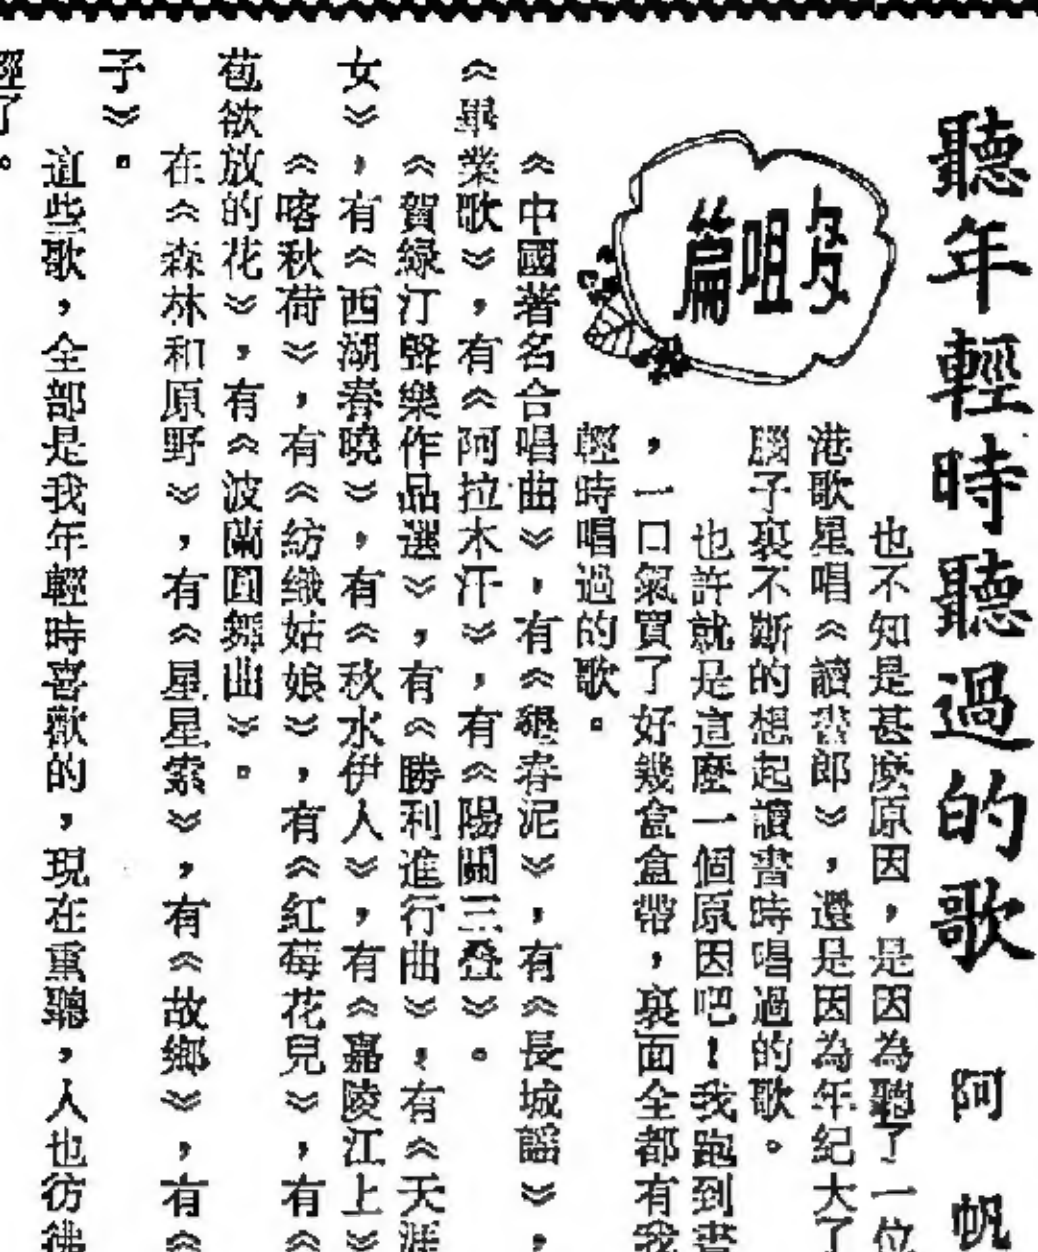 聽年輕時聽過的歌　阿帆
咀篇
也不知是甚麽原因，是因為聽了一位
港歌星唱《讀書郎》，還是因為年紀大了
腦子裏不斷的想起讀書時唱過的歌。
也許就是這麽一個原因吧！我跑到書
，一口氣買了好幾盒盒帶，裏面全都有我
輕時唱過的歌。
《中國著名合唱曲》，有《墾春泥》，有《長城謠》，
《畢業歌》，有《阿拉木汗》，有《陽關三叠》。
《賀綠汀聲樂作品選》，有《勝利進行曲》，有《天涯
女》，有《西湖春曉》，有《秋水伊人》，有《嘉陵江上》
《喀秋荷》，有《紡織姑娘》，有《紅莓花兒》，有《
苞欲放的花》，有《波蘭圓舞曲》。
在《森林和原野》，有《星星索》，有《故鄉》，有《
子》。
這些歌，全部是我年輕時喜歡的，現在重聽，人也彷彿
輕了。